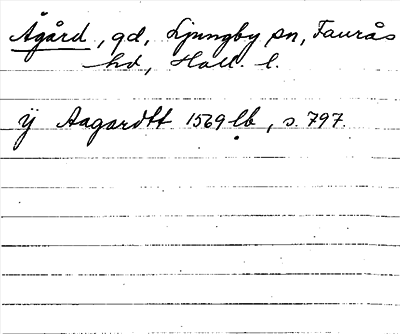 Ågård, gd, Ljungby sn, Faurås
hd, Hall. l.
ÿ Aagardtt 1569 lb, s. 797.